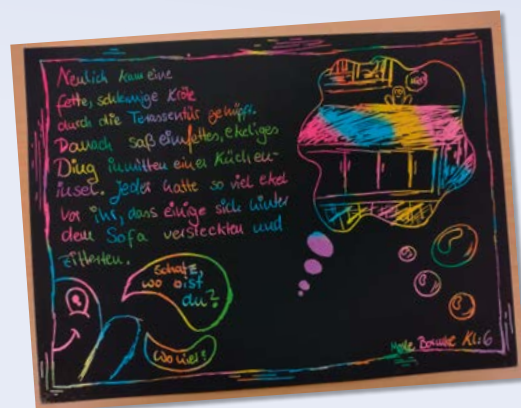 Neulich kam eine
fette, schleimige Kröte
durch die Terassentür gehüpft.
Danach saß ein fettes, ekeliges
Ding inmitten einer Küchen-
insel. Jeder hatte so viel ekel
vor ihr, dass einige sich hinter
dem Sofa versteckten und
zitterten.
Schatz,
wo bist
du?
Wo hier?
Kl:6